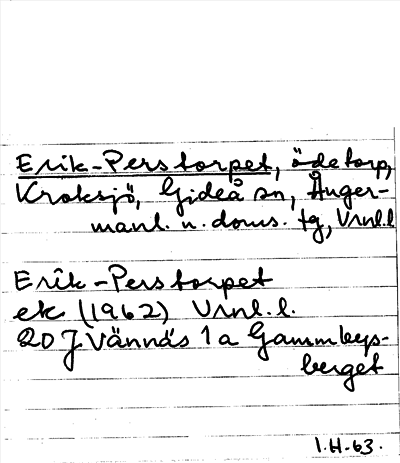 Erik-Pers torpet, ödetorp,
Kroksjö, Gideå sn, Ånger-
manl. n. doms. tg, Vrnl.l
Erik-Perstorpet
ek (1962) Vrnl.l.
20 J Vännäs 1 a Gammbys-
berget
I.H-63.